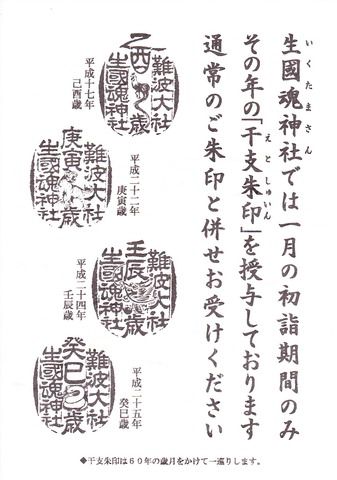 いくたまさん
生國魂神社では一月の初詣期間のみ
えとしゅいん
その年の「干支朱印」を授与しております
通常のご朱印と併せお受けください
難波大社
乙酉歳
生國魂神社
平成十七年
己酉歳
平成二十二年
庚寅歳
難波大社
庚寅歳
生國魂神社
難波大社
壬辰歳
生國魂神社
平成二十四年
壬辰歳
平成二十五年
癸巳歳
難波大社
癸巳歳
生國魂神社
◆干支朱印は60年の歳月をかけて一巡りします。